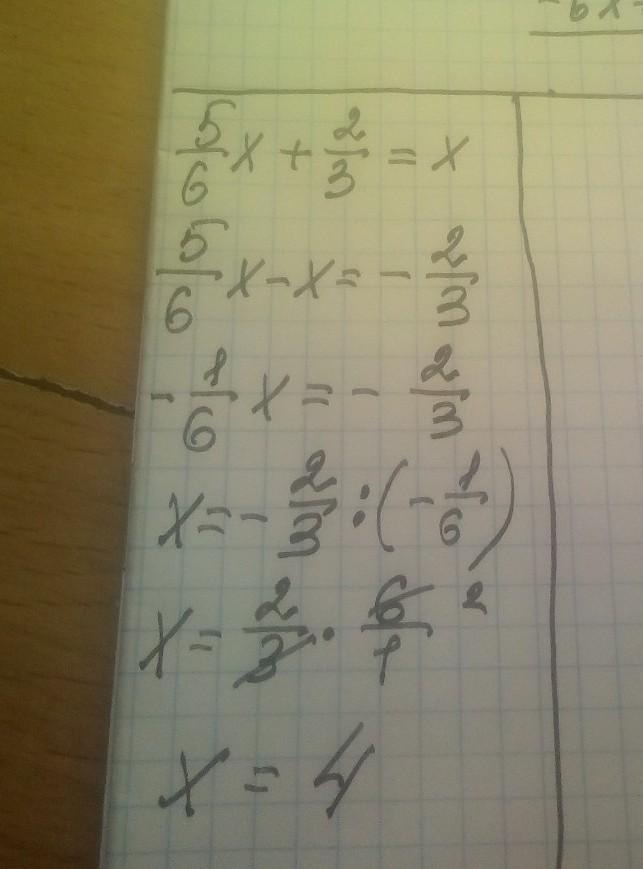 -6x
5/6 x + 2/3 = x
5/6 x - x = - 2/3
- 1/6 x = - 2/3
x = - 2/3 : (- 1/6)
x = 2/3 · 6/1 2
x = 4